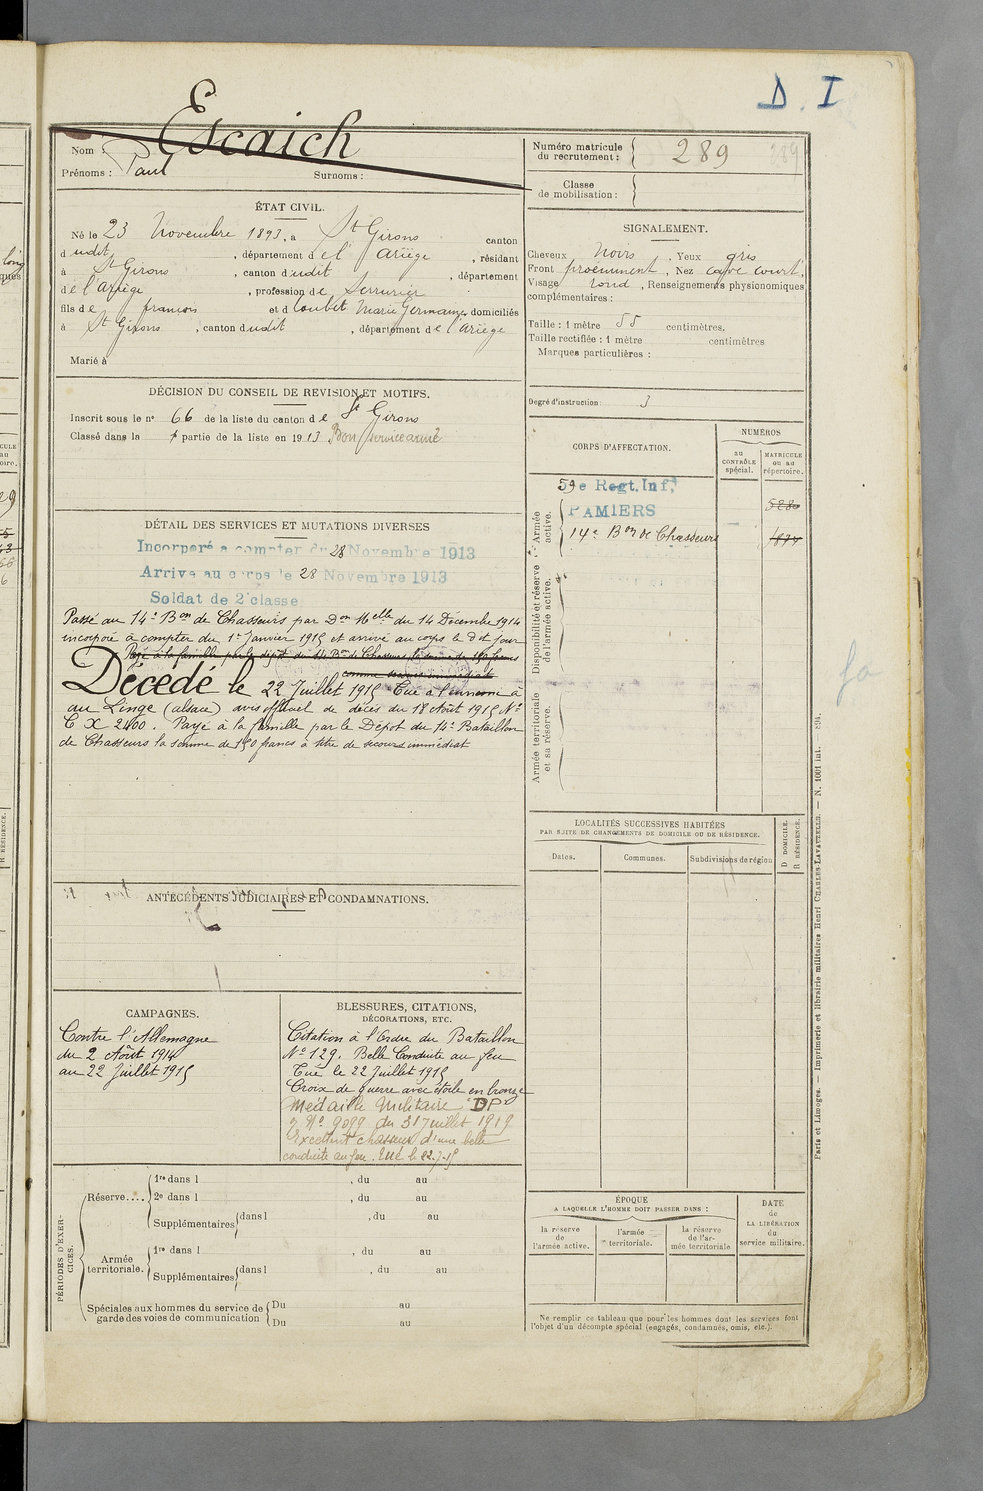 D. I
Escaich
Nom
Prénoms : Paul Surnoms :
Numéro matricule du recrutement : 289
Classe de mobilisation :
ÉTAT CIVIL.
Né le 23 Novembre 1893, à St Girons canton
dudit, département de l'Ariège, résidant
à St Girons, canton dudit, département
de l'Ariège, profession de Serrurier
fils de françois et de Loubet Marie Germaine, domiciliés
à St Girons, canton dudit, département de l'Ariège
Marié à
SIGNALEMENT.
Cheveux Noirs, Yeux gris
Front proéminent, Nez cave court,
Visage rond, Renseignements physionomiques
complémentaires :
Taille : 1 mètre 55 centimètres.
Taille rectifiée : 1 mètre centimètres
Marques particulières :
Degré d'instruction : 3
DÉCISION DU CONSEIL DE REVISION ET MOTIFS.
Inscrit sous le no 66 de la liste du canton de St Girons
Classé dans la 1e partie de la liste en 1913 Bon service armé
CORPS D'AFFECTATION.
NUMÉROS
au CONTRÔLE spécial.
MATRICULE ou au répertoire.
Armée active.
59e Regt. Inf.
PAMIERS
14e Bon de Chasseurs
Disponibilité et réserve de l'armée active.
Armée territoriale et sa réserve.
DÉTAIL DES SERVICES ET MUTATIONS DIVERSES
Incorporé a compter du 28 Novembre 1913
Arrivé au corps le 28 Novembre 1913
Soldat de 2e classe
Passé au 14e Bon de Chasseurs par Don Mlle du 14 Décembre 1914
incorporé à compter du 1er Janvier 1915 et arrivé au corps le d it jour
Payé à la famille par le dépôt du 14e Bon de Chasseurs la somme de 150 francs
comme secours immédiat
Décédé le 22 Juillet 1915 Tué à l'ennemi à
au Linge (alsace) avis officiel de décès du 18 Août 1915 No
C X 2400. Payé à la famille par le Dépôt du 14e Bataillon
de Chasseurs la somme de 150 francs à titre de secours immédiat
fa
LOCALITÉS SUCCESSIVES HABITÉES
PAR SUITE DE CHANGEMENTS DE DOMICILE OU DE RÉSIDENCE.
Dates.
Communes.
Subdivisions de région
D DOMICILE.
R RÉSIDENCE.
ANTÉCÉDENTS JUDICIAIRES ET CONDAMNATIONS.
CAMPAGNES.
Contre l'Allemagne
du 2 Août 1914
au 22 Juillet 1915
BLESSURES, CITATIONS,
DÉCORATIONS, ETC.
Citation à l'Ordre du Bataillon
No 129. Belle Conduite au feu
Tué le 22 Juillet 1915
Croix de guerre avec étoile en bronze
Médaille Militaire DP
No 9099 du 31 Juillet 1919
Excellent chasseur d'une belle
conduite au feu. Tué le 22-7-15
PÉRIODES D'EXERCICES.
Réserve....
1re dans l , du au
2e dans l , du au
Supplémentaires dans l , du au
Armée territoriale.
1re dans l , du au
Supplémentaires dans l , du au
Spéciales aux hommes du service de garde des voies de communication
Du au
Du au
ÉPOQUE
A LAQUELLE L'HOMME DOIT PASSER DANS :
la réserve de l'armée active.
l'armée territoriale.
la réserve de l'armée territoriale
DATE de LA LIBÉRATION du service militaire.
Ne remplir ce tableau que pour les hommes dont les services font
l'objet d'un décompte spécial (engagés, condamnés, omis, etc.).
Paris et Limoges. — Imprimerie et librairie militaires Henri CHARLES-LAVAUZELLE. — N. 1001 int.